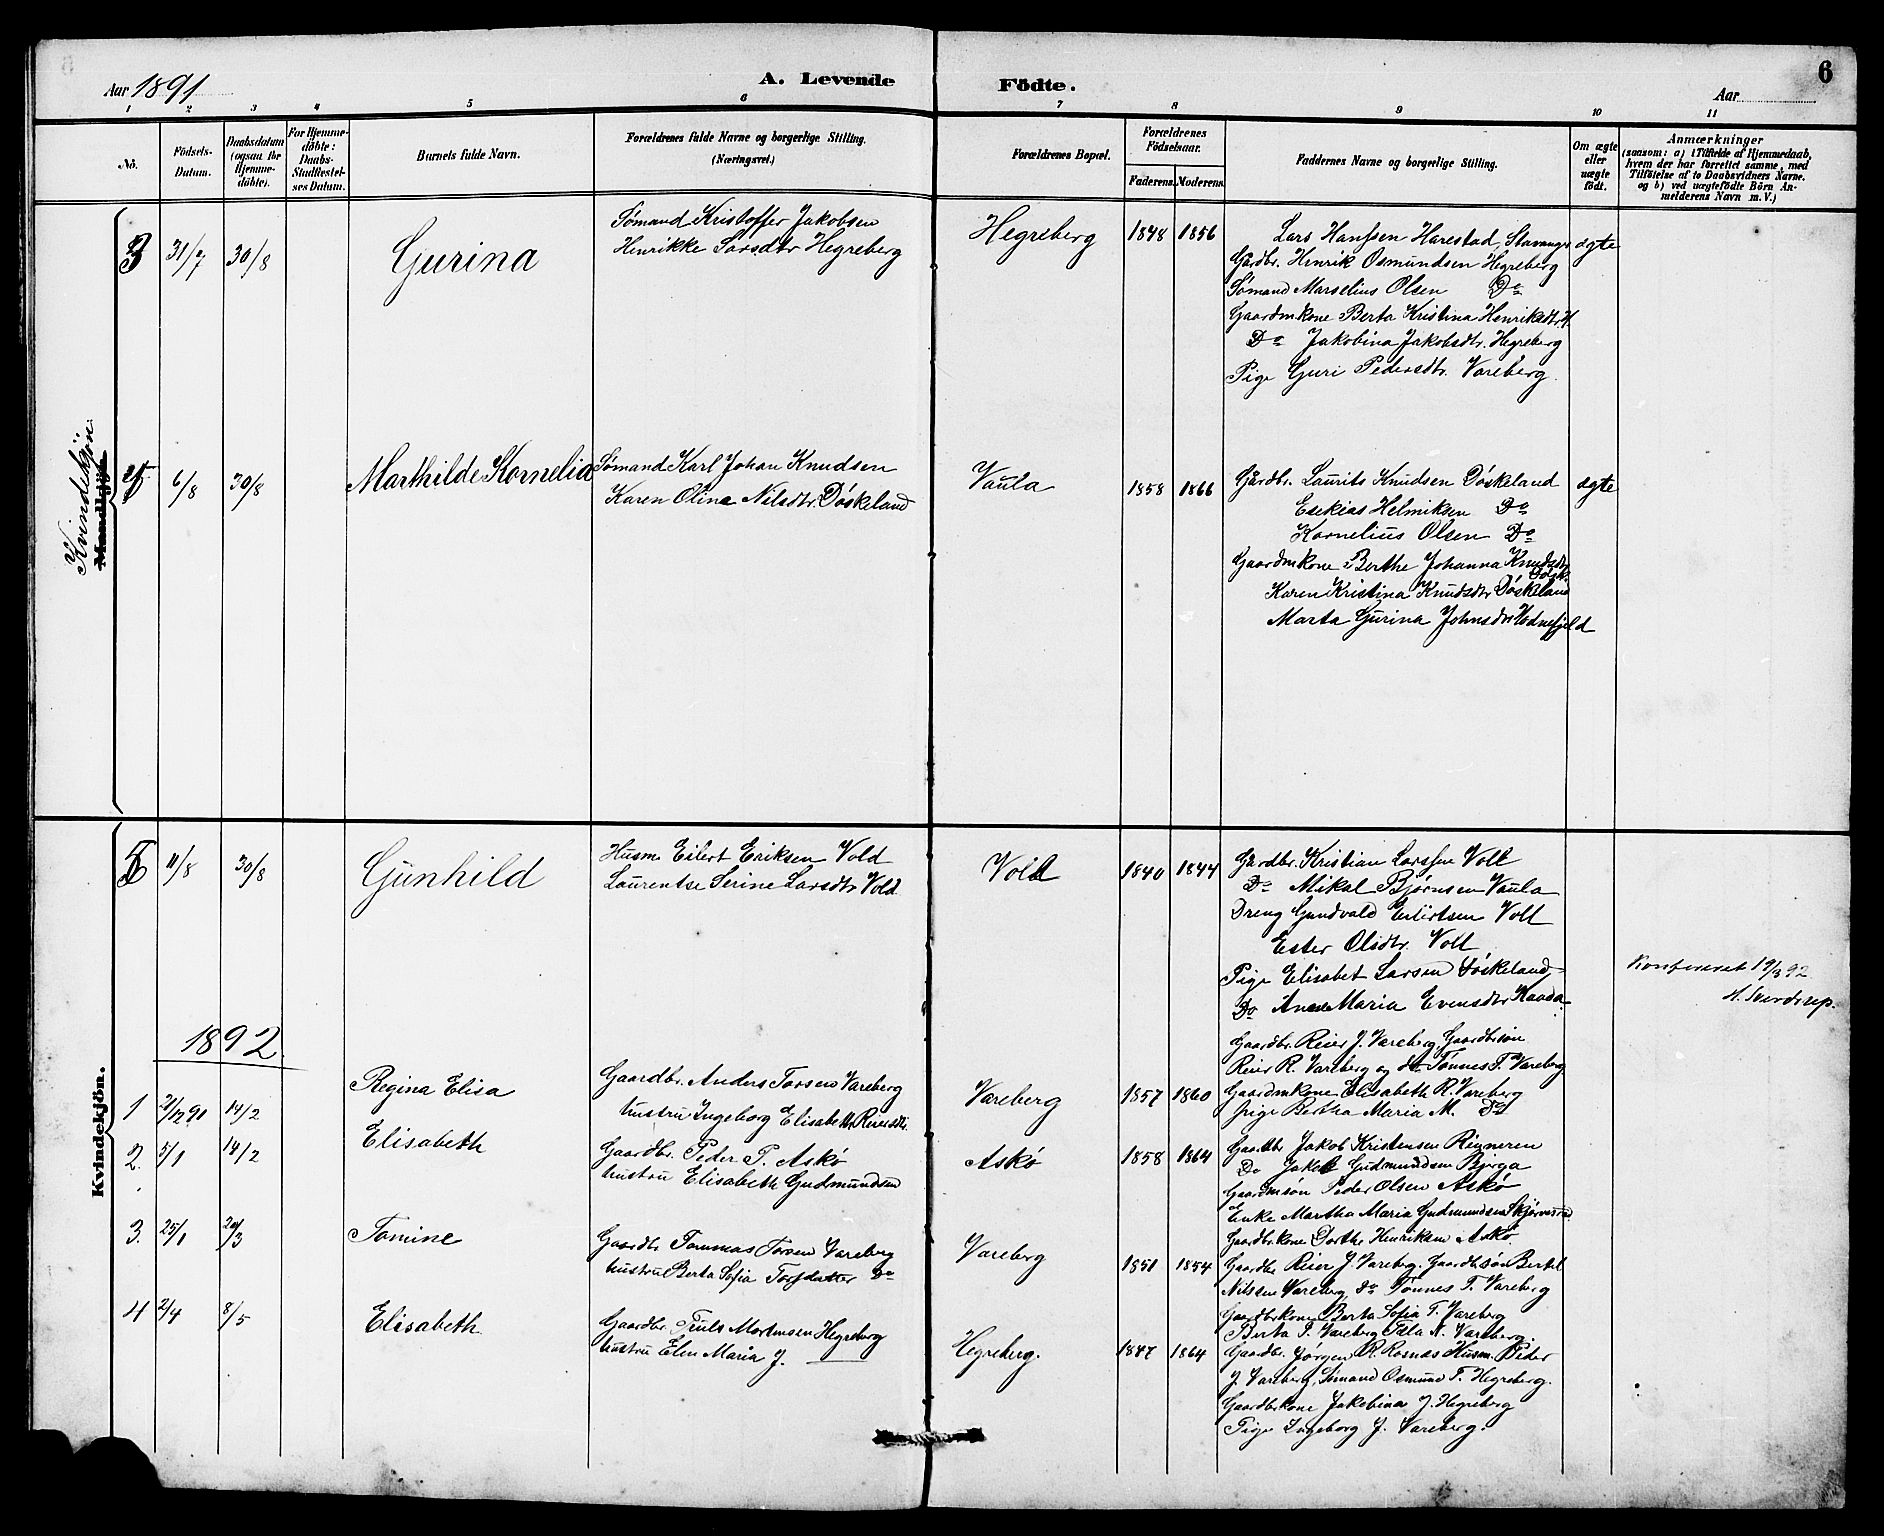 Aar 1891
A. Levende Födte.
Aar
6
1 2 3 4 5 6 7 8 9 10 11
No.
Födsels-Datum.
Daabsdatum (ogsaa for Hjemme-döbte).
For Hjemme-döbte: Daabs-Stadfæstel-ses Datum.
Barnets fulde Navn.
Forældrenes fulde Navne og borgerlige Stilling. (Næringsvei.)
Forældrenes Bopæl.
Forældrenes Födselsaar.
Faderens. Moderens.
Faddernes Navne og borgerlige Stilling.
Om ægte eller uægte födt.
Anmærkninger
(saasom: a) i Tilfælde af Hjemmedaab, hvem der har forrettet samme, med Tilföielse af to Daabsvidners Navne. og b) ved uægtefödte Börn An-melderens Navn m. V.)
Kvindekjön.
Mandkjön.
3 31/7 30/8 Gurina
Sømand Kristoffer Jakobsen
Henrikke Larsdtr Hegreberg
Hegreberg 1848 1856
Lars Hanssen Harestad, Stavanger
ægte
Gårdbr. Henrik Osmundsen Hegreberg
Sømand Marselius Olsen Do
Gaardmkone Berta Kristina Henriksdtr. H.
Do Jakobina Jakobsdtr. Hegreberg
Pige Guri Pedersdtr. Vareberg.
4 6/8 30/8 Marthilde Kornelia
Sømand Karl Johan Knudsen
Karen Olina Nilsdtr. Døskeland
Vaula 1858 1866
Gårdbr. Laurits Knudsen Døskeland
ægte
Esekias Helmiksen Do
Kornelius Olsen Do
Gaardmkone Berthe Johanna Knudsdtr Døsk.
Karen Kristina Knudsdtr Døskeland
Marta Gurina Johnsdtr Vodnefjeld
Kvindekjön.
5 11/8 30/8 Gunhild
Husm. Eilert Eriksen Vold
Laurentse Serine Larsdtr Vold
Vold 1840 1844
Gårdbr. Kristian Larssen Voll
Do Mikal Bjørnsen Vaula
Dreng Gundvald Eilertsen Voll
Ester Olsdtr. Voll
Pige Elisabet Larsen Døskeland
Do Anne Maria Evensdtr Kaada
Konfereret 19/3 92
H. Sverdrup.
1892
1 2/12 91 14/2 Regina Elisa
Gaardbr. Anders Torsen Vareberg
hustru Ingeborg Elisabeth Reiersdtr.
Vareberg 1857 1860
Gaardbr. Reier J. Vareberg, Gaardbrsøn
Reier R. Vareberg og do Tønnes T. Vareberg
Gaardmkone Elisabeth R. Vareberg
Pige Bertha Maria M. Do
2. 5/1 14/2 Elisabeth
Gaardbr. Peder P. Askø
hustru Elisabeth Gudmundsen
Askø 1858 1864
Gaardbr Jakob Kristensen Renneren
Do Jakob Gudmundsen Bjerga
Gaardmsøn Peder Olsen Askø
Enke Martha Maria Gudmundsen
Gaardbrkone Dorthe Henriksen Askø
3. 25/1 20/3 Tomine
Gaardbr. Tommas Torsen Vareberg
hustru Berta Sofia Torsdatter Do
Vareberg 1851 1854
Gaardbr Reier J. Vareberg. Gaardbsøn Bertel
Nilssen Vareberg, do Tønnes T. Vareberg
Gaardbrkone Berta Sofia T. Vareberg
Berta T. Vareberg, N. Vareberg.
4 2/4 8/5 Elisabeth
Gaardbr. Truls Mortensen Hegreberg
hustru Elen Maria J.
Hegreberg. 1847 1864
Gaardbr. Jørgen R. Rosnæs Husm. Peder
J. Vareberg, Sømand Osmund T. Hegreberg.
Gaardbrkone Jakobina J. Hegreberg
Pige Ingeborg J. Vareberg.